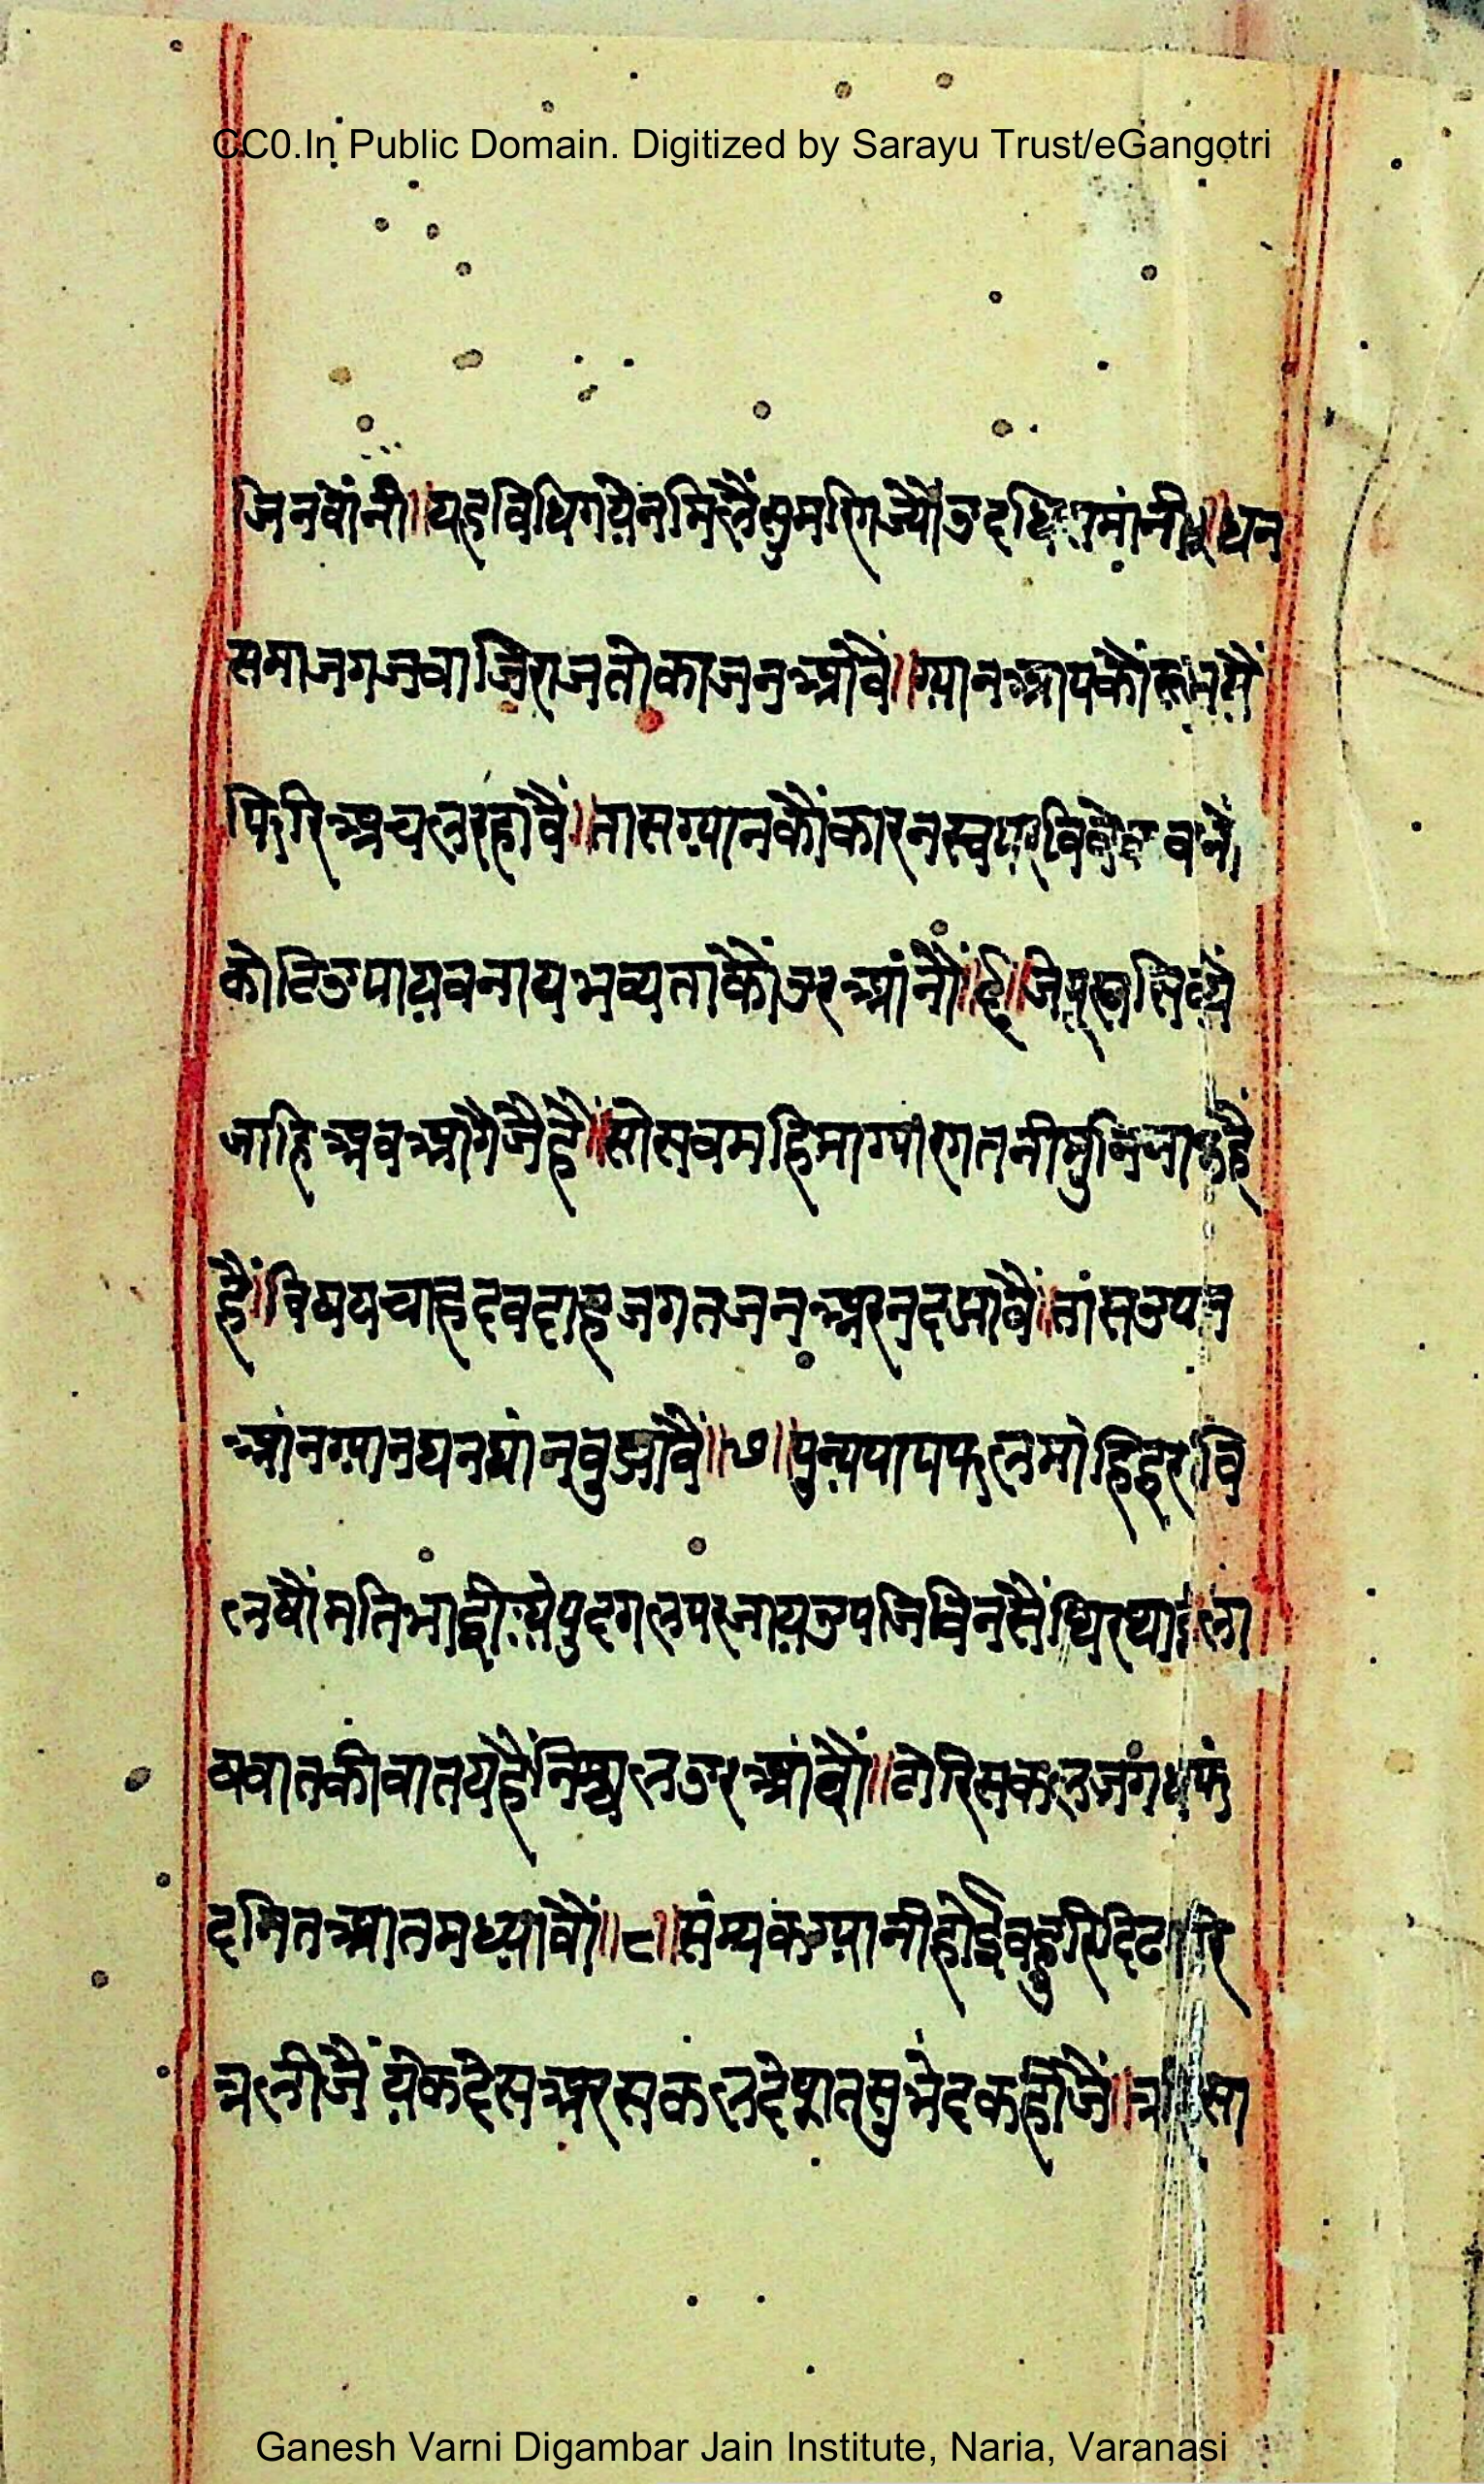 CC0.In Public Domain. Digitized by Sarayu Trust/eGangotri
जिनवांनी॥यहविधिगयेनमिलैंसुमरिगज्यौउदधिसमांनी॥५॥धन
समाजगजवाजिराजतोकाजनआंवै॥ग्यानआपकौंरूप
फिरिअचलरहांवैं॥तासग्यानकौंकारनस्वपरविवेक
कोटिउपायवनायभव्यताकौंउरआंनौं॥६॥जेपूरव
जाहिअवआगैजैहैं॥सोसवमहिमाग्यांरगतनीमुनि
हैं॥विषयचाहदवदाहजगतजनअरनदझावैं॥तांसउपान
आंनग्यानघनघांनवुझांवैं॥७॥पुन्यपापफलमांहिहरषवि
लषौंमतिभाईयेपुदगलपरजायउपजिविनसैंथिरथाईला
षवातकीवातयहैंनिश्चलउरआंवौं॥तोरिसकलजंगधफं
दनितआतमध्यावौं॥८॥संम्यकग्यानीहोइवहुरिदिढचारि
त्रलीजैं येकदेसअरसकलदेषातसुभेदकहीजैं॥त्र सा
Ganesh Varni Digambar Jain Institute, Naria, Varanasi